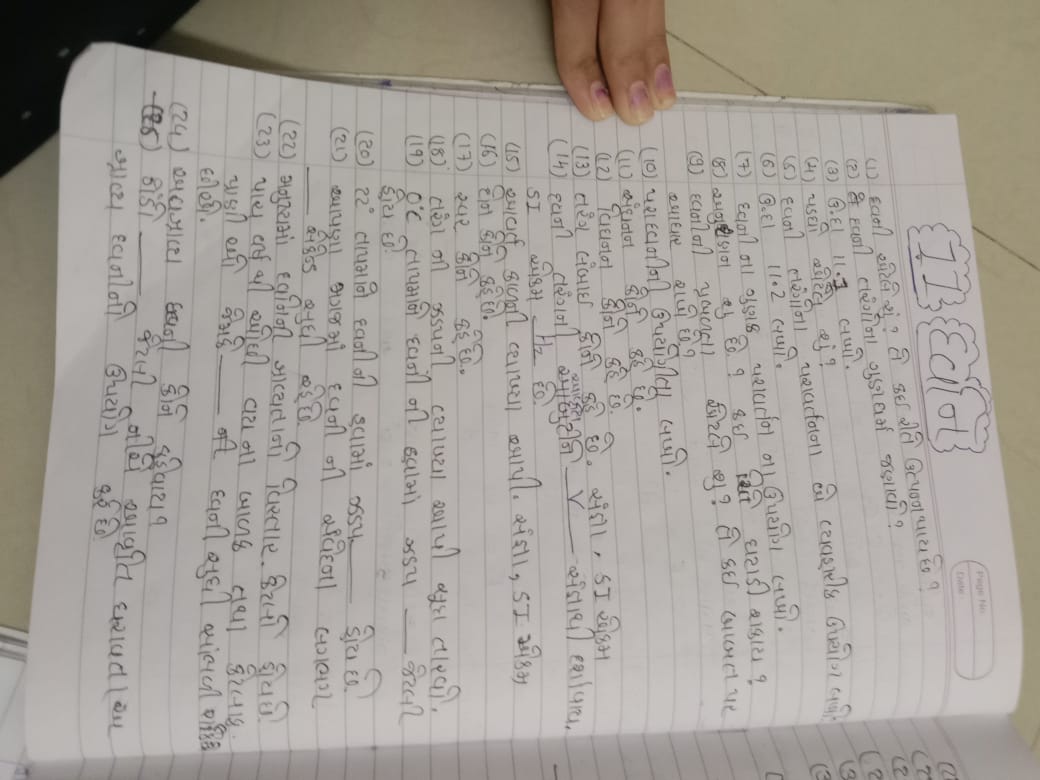 Page No.
Date
11 ધ્વનિ
(1) ધ્વની એટલે શું? તે કઇ રીતે ઉત્પન્ન થાય છે?
(2) ધ્વની તરંગોના ગુણધર્મ જણાવો?
(3) ઉ.દા 11.1 લખો.
(4) પડઘો એટલે શું?
(5) ધ્વની તરંગોના પરાવર્તનના બે વ્યવહારીક ઉપયોગ લખો.
(6) ઉ.દા 11.2 લખો.
(7) ધ્વની ના ગુણક પરાવર્તન ના ઉપયોગ લખો.
(8) અનુરણન શું છે? કઇ રીતે ઘટાડી શકાય?
(9) ધ્વનીની પ્રબળતા એટલે શું? તે કઇ બાબત પર
આધાર રાખે છે?
(10) પરાધ્વનીની ઉપયોગીતા લખો.
(11) સંઘનન કોને કહે છે.
(12) વિઘનન કોને કહે છે.
(13) તરંગ લંબાઇ કોને કહે છે. સંજ્ઞા, SI એકમ
(14) ધ્વની તરંગની આવૃતિને V સંજ્ઞાથી દર્શાવાય.
SI એકમ Hz છે.
(15) આવર્ત કાળની વ્યાખ્યા આપો. સંજ્ઞા, SI એકમ
(16) ટોન કોને કહે છે.
(17) સ્વર કોને કહે છે.
(18) તરંગ ની ઝડપની વ્યાખ્યા આપી સૂત્ર તારવો.
(19) 0°C તાપમાને ધ્વની ની હવામાં ઝડપ ___ જેટલી
હોય છે.
(20) 22° તાપમાને ધ્વનીની હવામાં ઝડપ ___ હોય છે.
(21) આપણા મગજમાં ધ્વની ની સંવેદના લગભગ
___ સેકેન્ડ સુધી રહે છે.
(22) મનુષ્યમાં ધ્વનિની શ્રાવ્યતાનો વિસ્તાર કેટલો હોય છે.
(23) પાંચ વર્ષ થી ઓછી વય ના બાળક તથા કેટલાક
પ્રાણીઓ જેમકે ___ ની ધ્વની સુધી સાંભળી શકે છે
(24) અવશ્રાવ્ય ધ્વની કોને કહેવાય?
(25) ___ જેટલી નીચે આવૃતિ ધરાવતા અવ
શ્રાવ્ય ધ્વનીનો ઉપયોગ કરે છે.